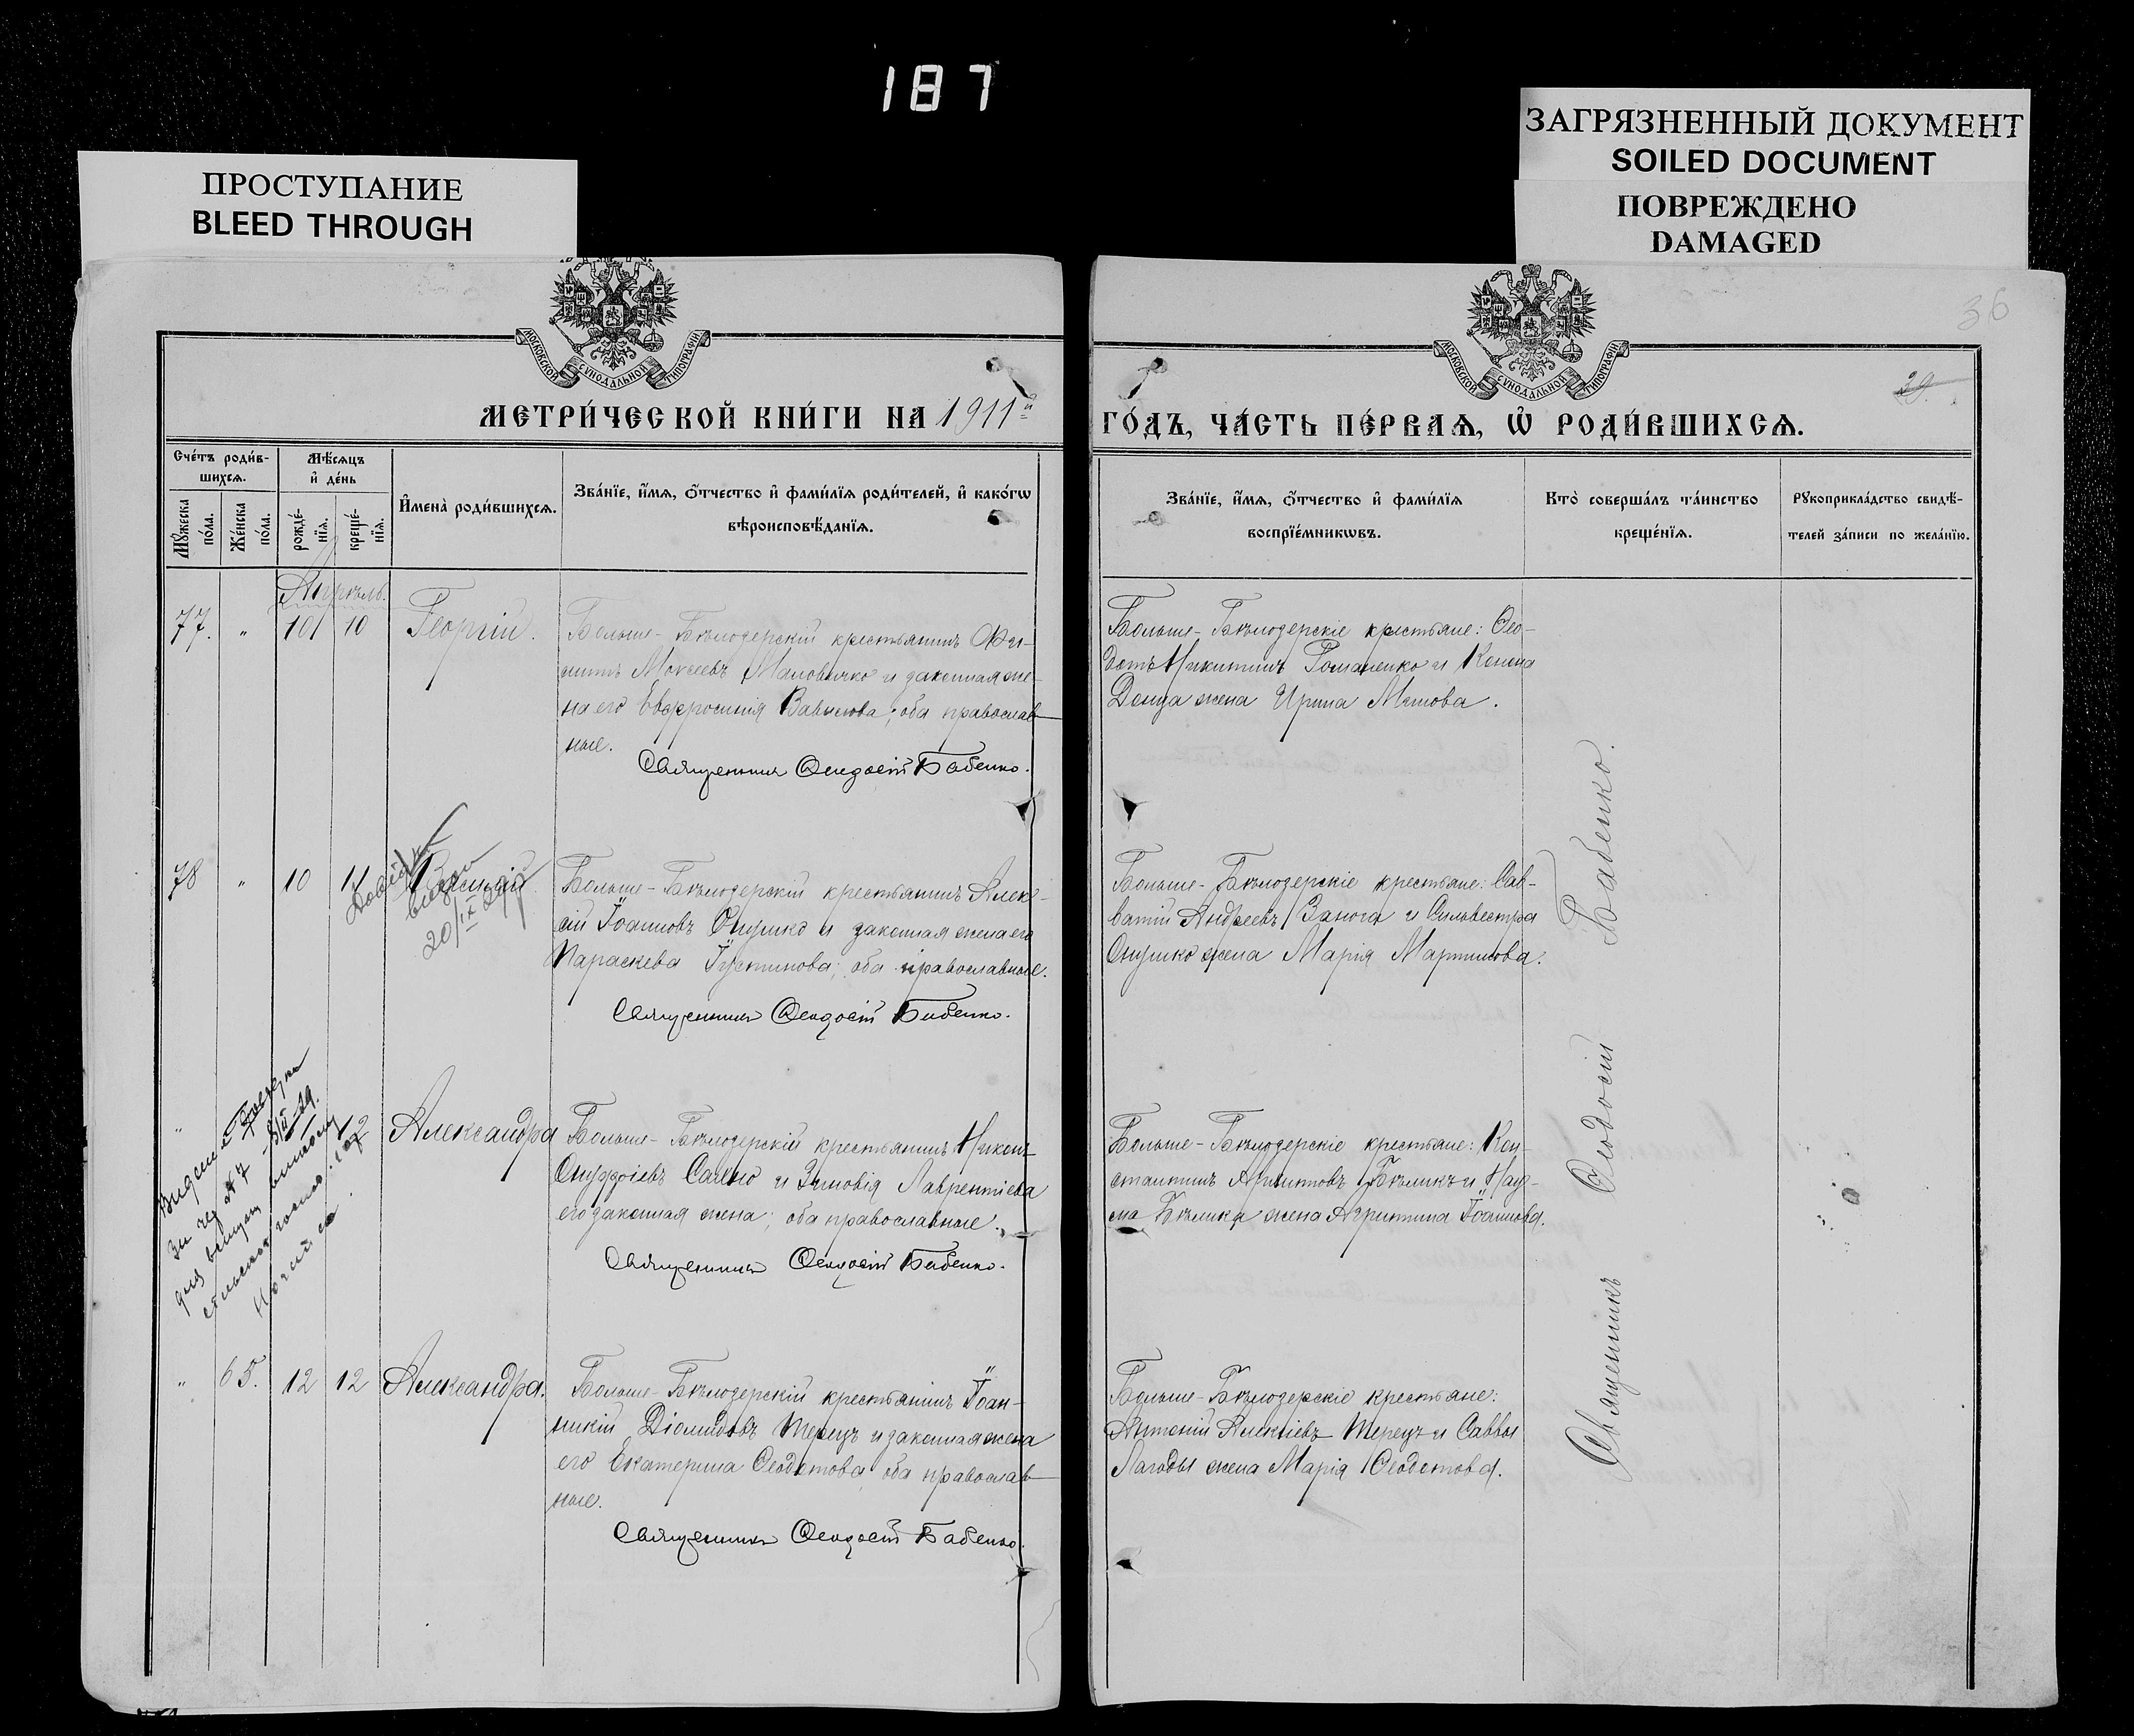 187
ПРОСТУПАНИЕ
BLEED THROUGH
ЗАГРЯЗНЕННЫЙ ДОКУМЕНТ
SOILED DOCUMENT
ПОВРЕЖДЕНО
DAMAGED
36
29.
МОСКОВСКОЙ СУНОДАЛЬНОЙ ТИПОГРАФІИ
МОСКОВСКОЙ СУНОДАЛЬНОЙ ТИПОГРАФІИ
МЕТРИ́ЧЕСКОЙ КНИ́ГИ НА 1911й
ГО́ДЪ, ЧА́СТЬ ПЕ́РВАѦ, Ѽ РОДИ́ВШИХСѦ.
Сче́тъ роди́в-
шихсѧ.
Мꙋ́жеска по́ла.
Же́нска по́ла.
Мѣ́сѧцъ
и҆ де́нь
рожде́-
нїѧ.
креще́-
нїѧ.
И҆мена̀ роди́вшихсѧ.
Зва́нїе, и҆́мѧ, ѻ҆́тчество и҆ фами́лїѧ роди́телей, и҆ како́гѡ
вѣроисповѣ́данїѧ.
Зва́нїе, и҆́мѧ, ѻ҆́тчество и҆ фами́лїѧ
воспрїе́мникѡвъ.
Кто̀ соверша́лъ та́инство
креще́нїѧ.
Рꙋкоприкла́дство свидѣ́-
телей за́писи по жела́нїю.
Апрѣль.
77. " 10 10 Георгій.
Больше-Бѣлозерскій крестьянинъ
Моѵсеевъ Маловичко и законная же-
на его Евфросинія Вавилова; оба православ-
ные.
Священникъ Ѳеодосій Бабенко.
Больше-Бѣлозерскіе крестьяне: Ѳео-
дотъ Никитинъ Романенко и Конона
Донца жена Ирина
78 " 10 11 Василій.
Довідку
видан
20/IX
Больше-Бѣлозерскій крестьянинъ Алек-
сій Іоанновъ Онушко и законная жена его
Параскева Іустинова; оба православные.
Священникъ Ѳеодосій Бабенко.
Больше-Бѣлозерскіе крестьяне: Сав-
ватій Андреевъ Занога и Сильвестра
Онушко жена Марія Мартинова.
" 12 Александра
Больше-Бѣлозерскій крестьянинъ Никонъ
Онуфріевъ Сачко и Зиновія Лаврентіева
его законная жена; оба православные.
Священникъ Ѳеодосій Бабенко.
Больше-Бѣлозерскіе крестьяне: Кон-
стантинъ Бѣликъ и Нау-
ма Бѣлика жена Агриппина Іоаннова.
" 65. 12 12 Александра.
Больше-Бѣлозерскій крестьянинъ Іоан-
никій Діомидовъ Терецъ и законная жена
его Екатерина Ѳеодотова, оба православ-
ные.
Священникъ Ѳеодосій Бабенко.
Больше-Бѣлозерскіе крестьяне:
Антоній Алексіевъ Терецъ и Саввы
Лагоды жена Марія Ѳеодотова.
Священникъ Ѳеодосій Бабенко.